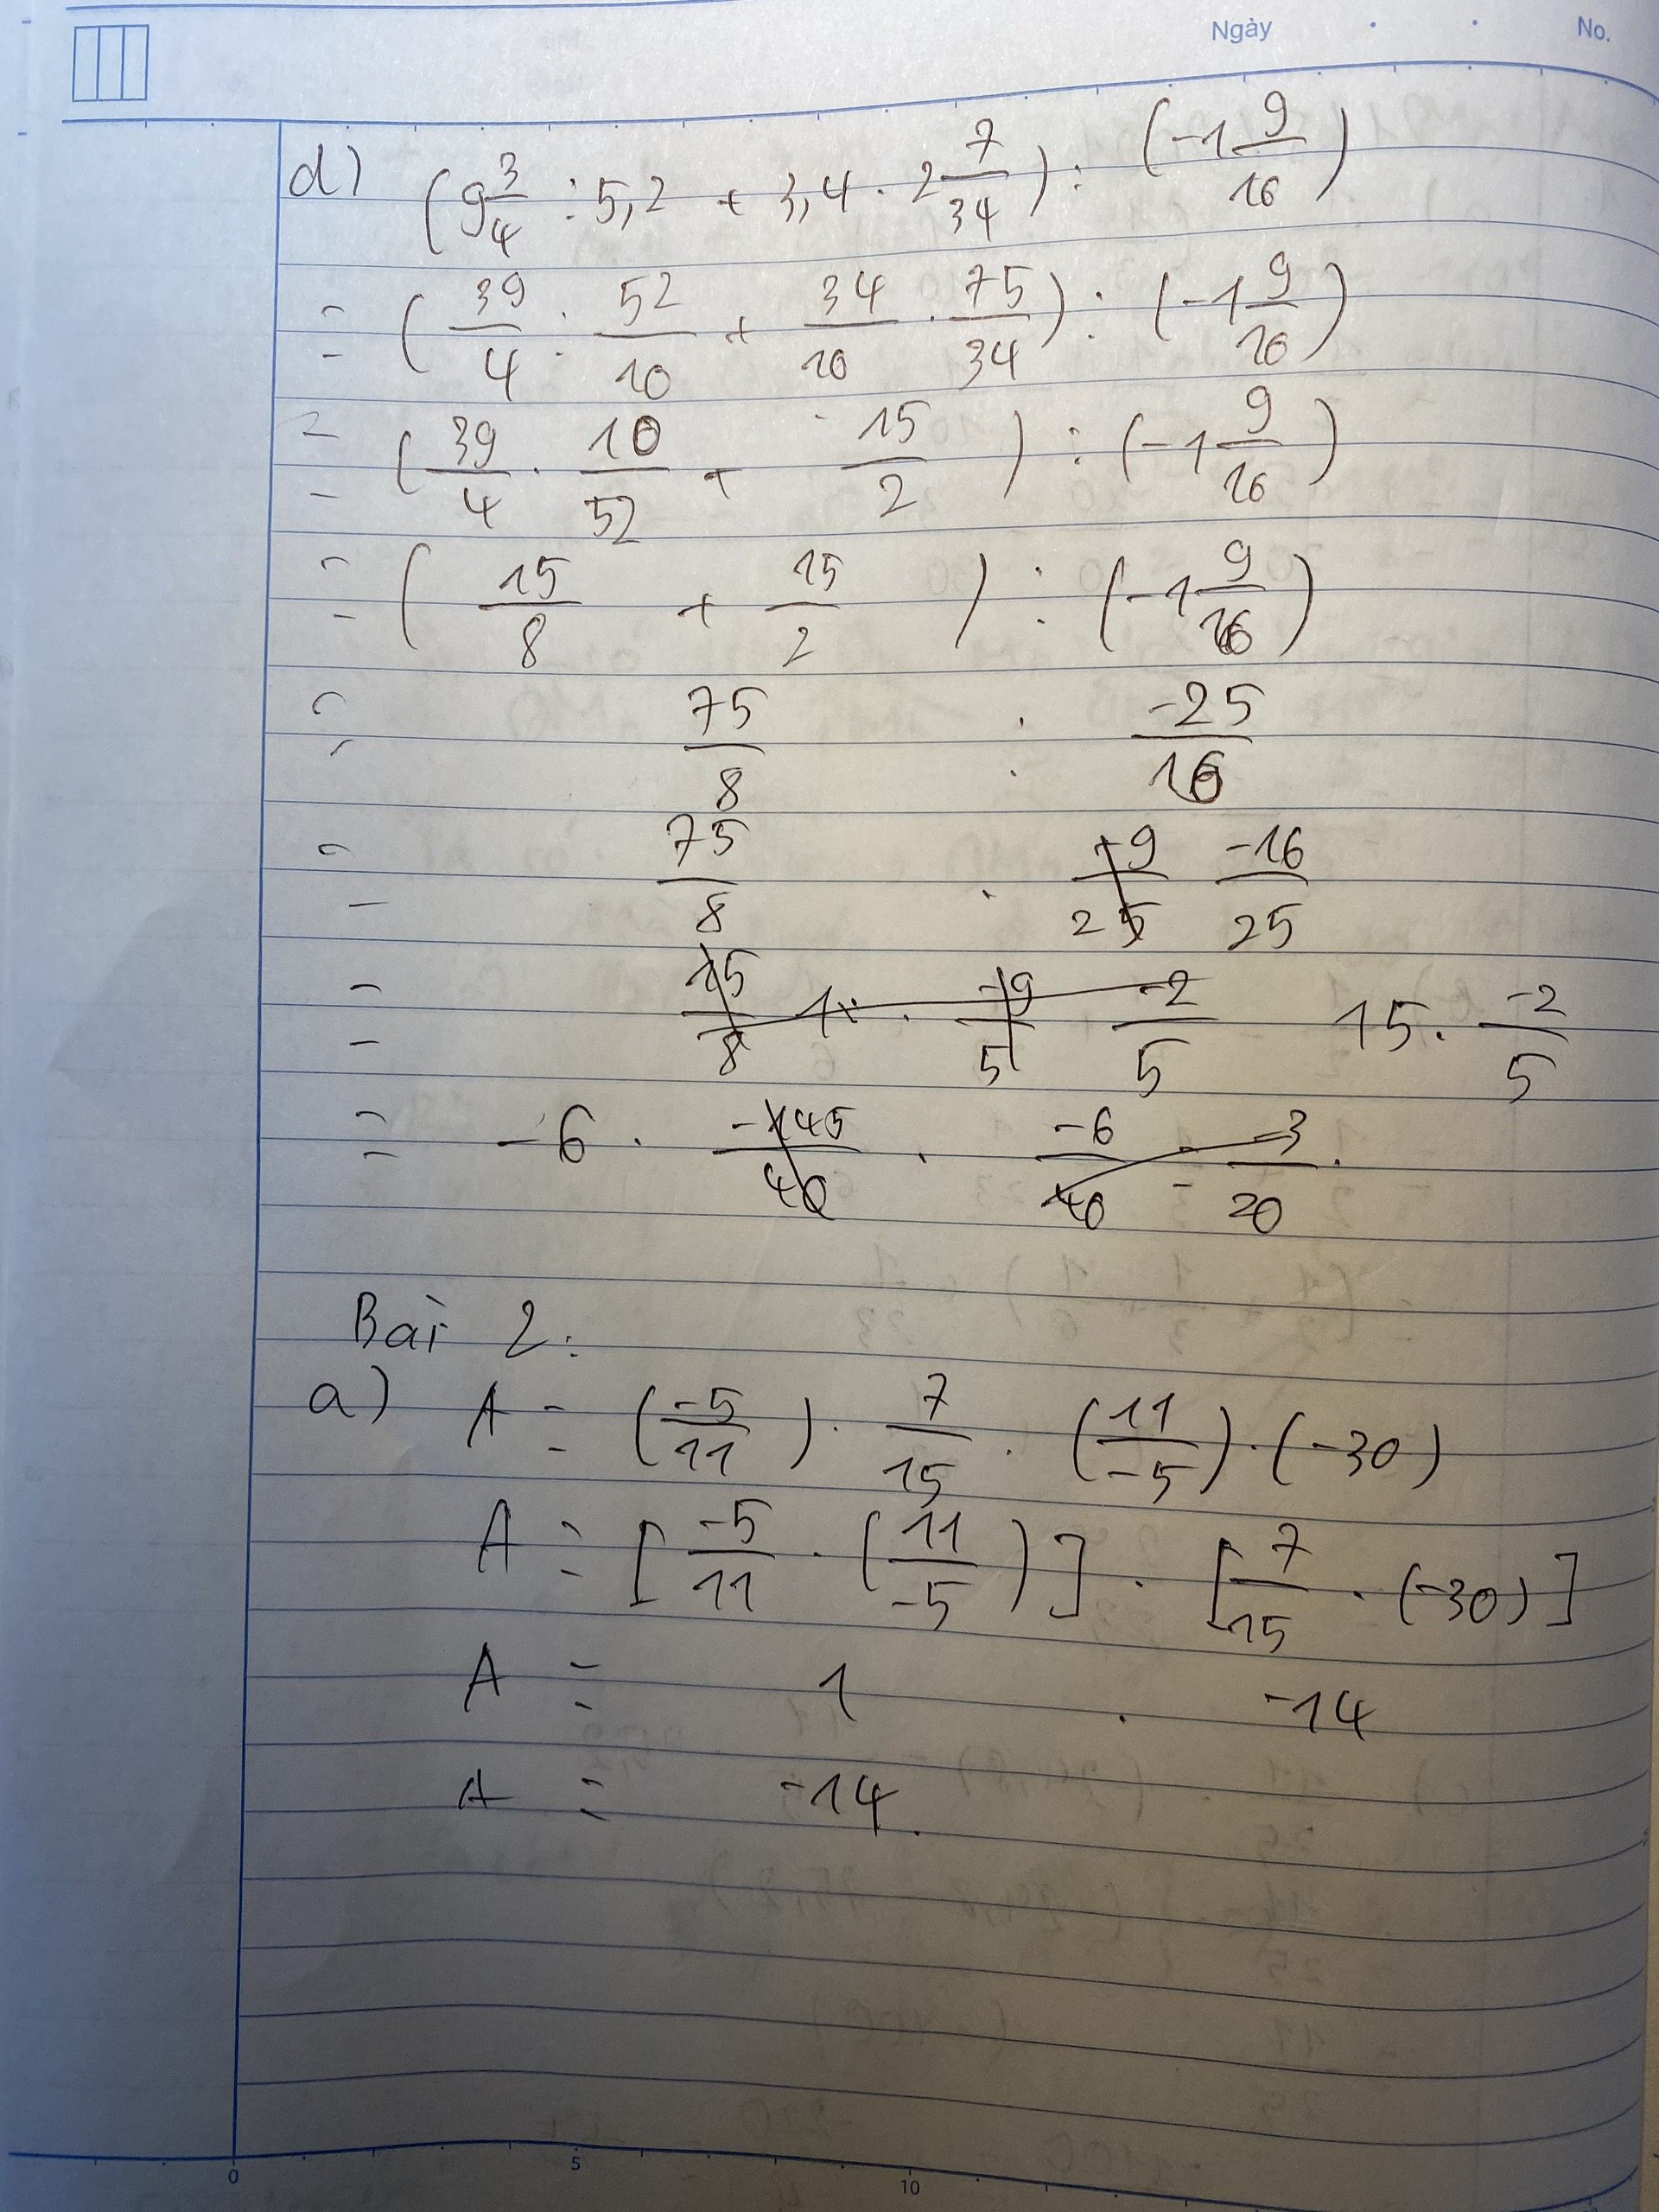 Ngày No.
d) (9 3/4 : 5,2 + 3,4 . 2 7/34) : (-1 9/16)
= (39/4 : 52/10 + 34/10 . 75/34) : (-1 9/16)
= (39/4 . 10/52 + 15/2) : (-1 9/16)
= (15/8 + 15/2) : (-1 9/16)
= 75/8 : -25/16
= 75/8 . -9/25 -16/25
= 15/8 . -9/5 -2/5 15 . -2/5
= -6 . -145/40 . -6/40 = -3/20 .
Bài 2:
a) A = (-5/11) . 7/15 . (11/-5) . (-30)
A = [-5/11 . (11/-5)] . [7/15 . (-30)]
A = 1 . -14
A = -14.
0 5 10